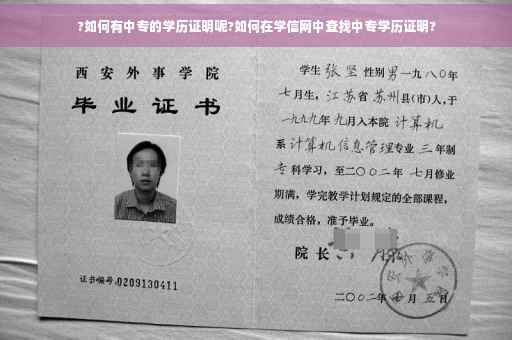 ?如何有中专的学历证明呢?如何在学信网中查找中专学历证明?
西安外事学院
毕业证书
证书编号:0209130411
学生 张坚 性别 男 一九八〇年
七月生，江苏省 苏州县(市)人，于
一九九九年 九月入本院 计算机
系 计算机信息管理专业 三 年制
专 科学习，至二〇〇二年 七月修业
期满，学完教学计划规定的全部课程，
成绩合格，准予毕业。
院长
二〇〇二年 月 五日